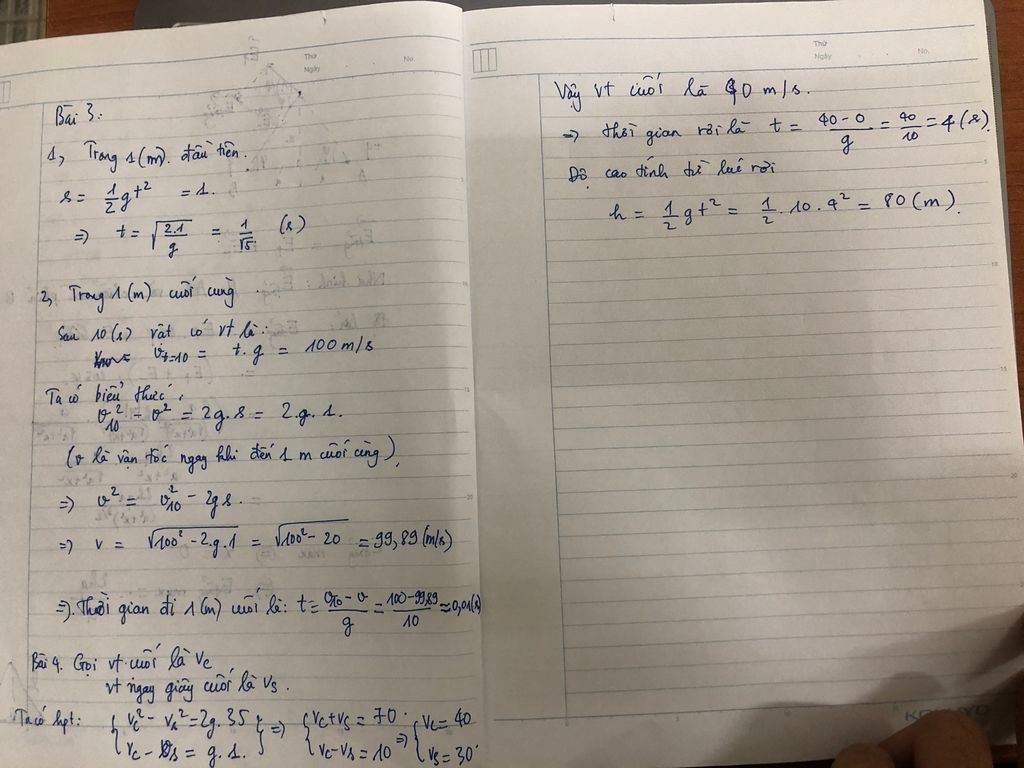 Thứ
Ngày
No.
Bài 3:
1, Trong 1(m). đầu tiên.
s = 1/2 gt² = 1.
⇒ t = √(2.1/g) = 1/√5 (s)
2, Trong 1(m) cuối cùng
Sau 10(s) vật có vt là:
v_{t=10} = t.g = 100 m/s
Ta có biểu thức,
v₁₀² - v² = 2g.s = 2.g.1.
(v là vận tốc ngay khi đến 1 m cuối cùng),
⇒ v² = v₁₀² - 2gs.
⇒ v = √(100² - 2.g.1) = √(100² - 20) = 99,89 (m/s)
⇒). Thời gian đi 1(m) cuối là: t = (v₁₀ - v)/g = (100 - 99,89)/10 ≈ 0,01(s)
Bài 4. Gọi vt cuối là Vc
vt ngay giây cuối là Vs.
Ta có hpt: { Vc² - Vs² = 2g.35 ; Vc - Vs = g.1. } ⇒ { Vc + Vs = 70 ; Vc - Vs = 10 ⇒ { Vc = 40 ; Vs = 30
Thứ
Ngày
No.
Vậy vt cuối là 40 m/s.
⇒ thời gian rơi là t = (40 - 0)/g = 40/10 = 4 (s).
Độ cao tính từ lúc rơi
h = 1/2 gt² = 1/2 . 10 . 4² = 80 (m).